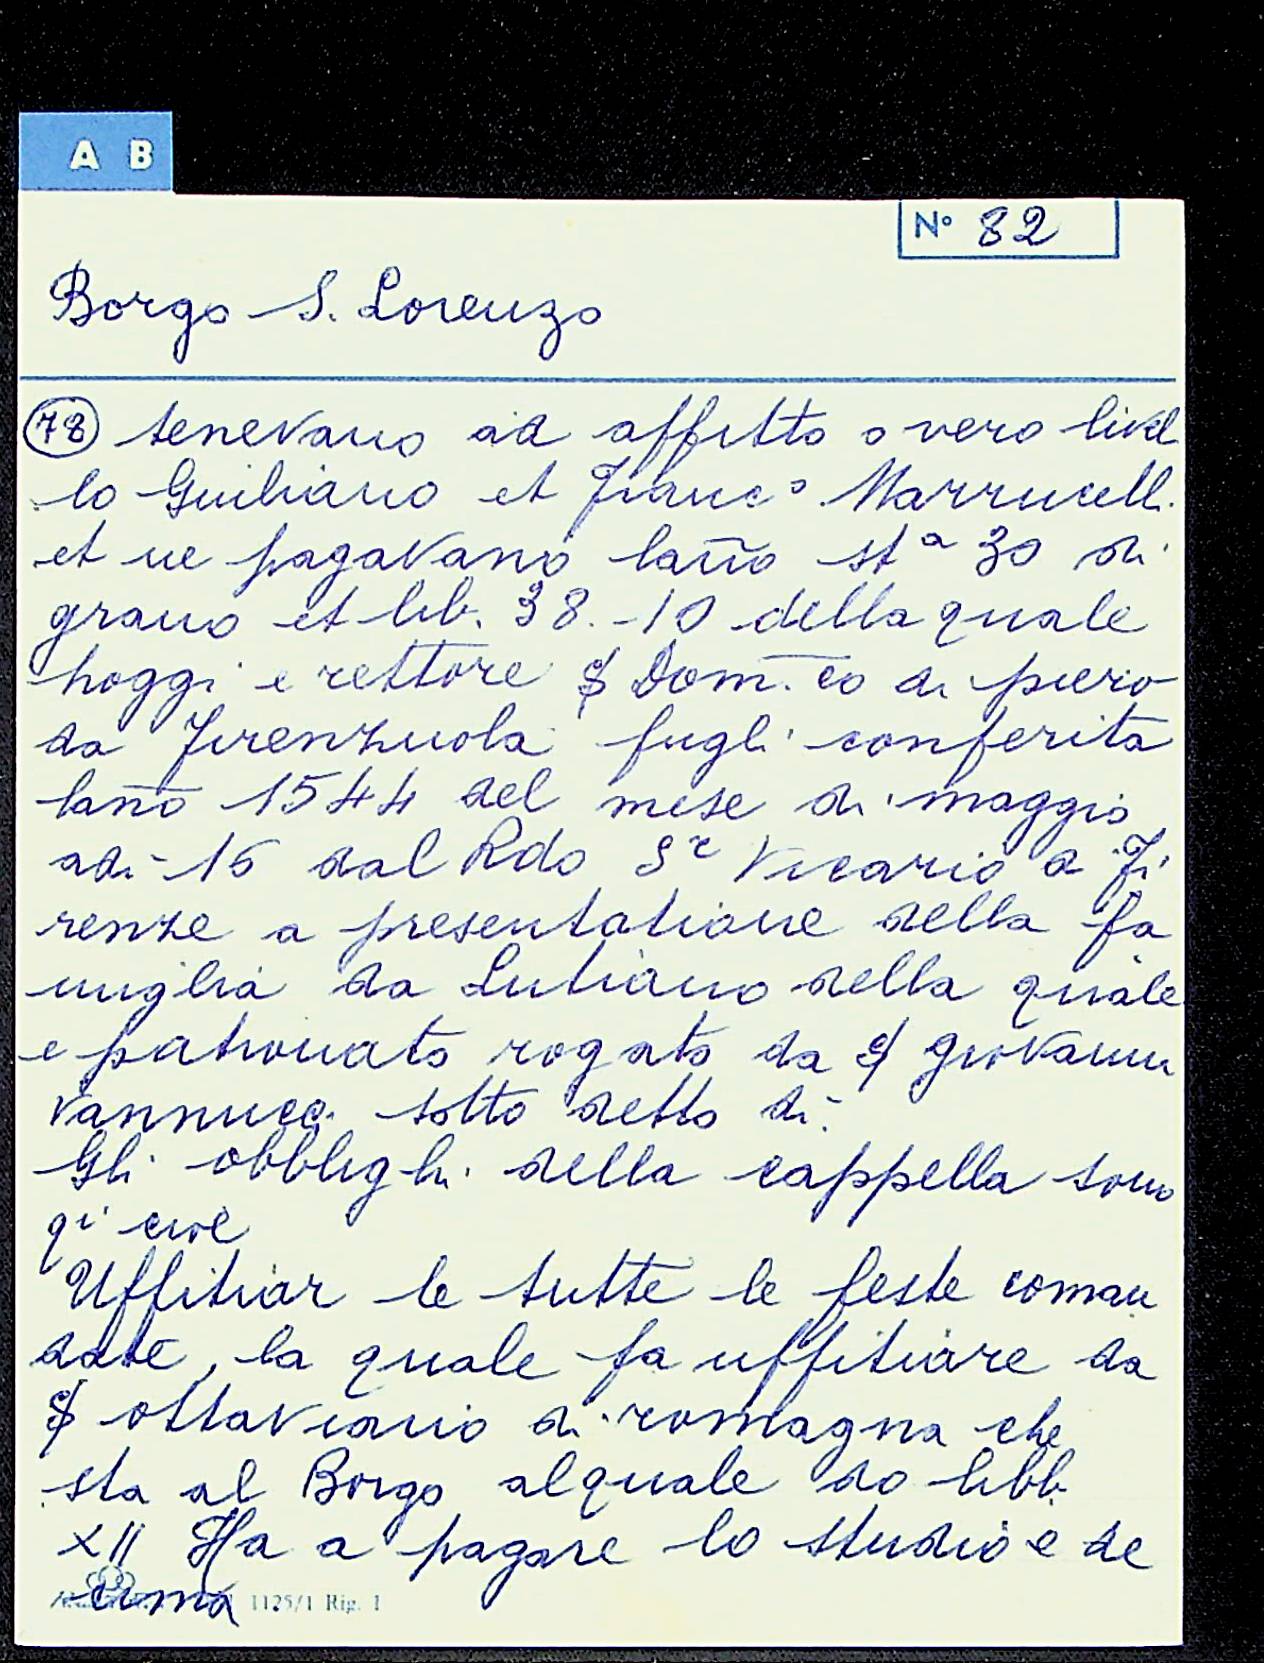 A B
N° 82
Borgo S. Lorenzo
78 tenevano ad affitto overo livel
lo Guiliano et Franc° Marrucell.
et ne pagavano lan̄o stª 30 di
grano et lib. 38.-10 della quale
hoggi e rettore Dom.co di piero
da Firenzuola fugli conferita
lan̄o 1544 del mese di maggio
adi 15 dal Rdo Sr Vicario a Fi
renze a presentatione della fa
miglia da Lutiano della quale
e patronato rogato da giovanni
vannucci sotto detto di.
Gli obblighi della cappella sono
qi cioè
Uffitiar le tutte le feste coman
date, la quale fa uffitiare da
ottaviano di romagna che
sta al Borgo alquale do libb.
XII Ha a pagare lo studio e de
cima
1125/1 Rig. 1